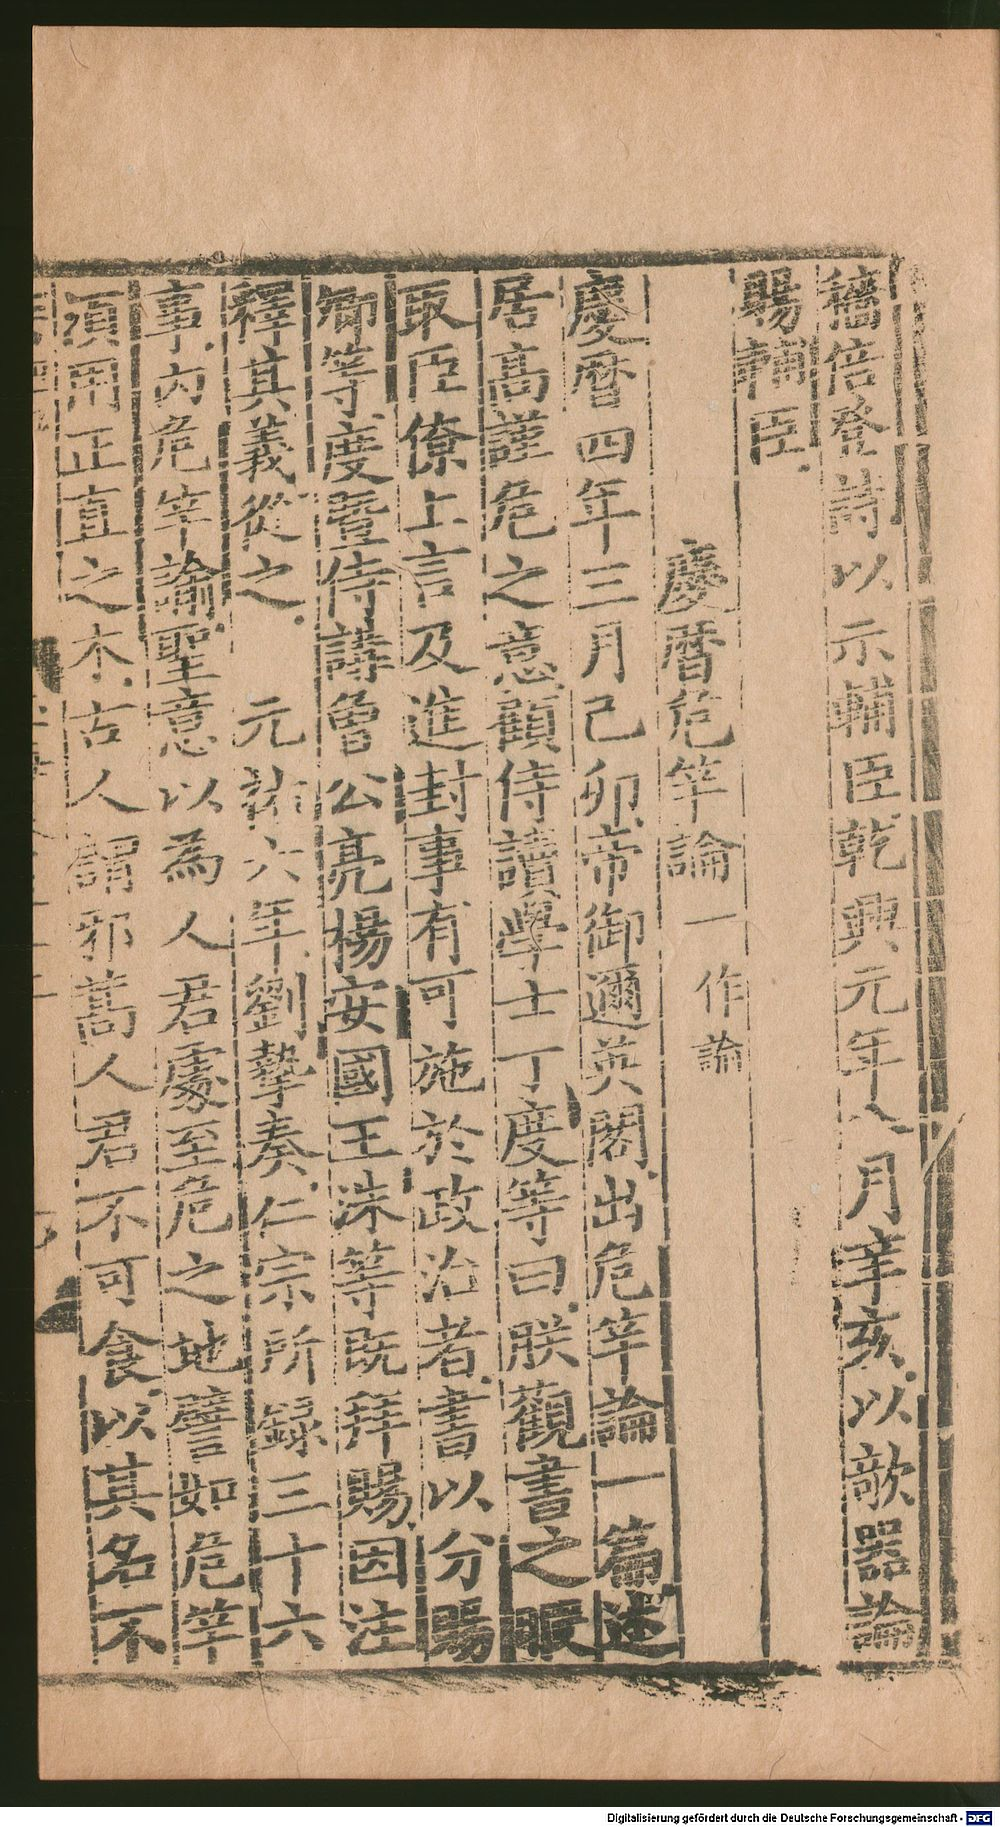 穡倍登詩以示輔臣乾興元年八月辛亥以欹器論
賜輔臣
慶曆危竿論一作論
慶曆四年三月己卯帝御邇英閣出危竿論一篇述
居高謹危之意顧侍讀學士丁度等曰朕觀書之暇
取臣僚上言及進封事有可施於政治者書以分賜
卿等度暨侍講曾公亮楊安國王洙等既拜賜因注
釋其義從之 元祐六年劉摯奏仁宗所録三十六
事內危竿論聖意以為人君處至危之地譬如危竿
須用正直之木古人謂邪蒿人君不可食以其名不
Digitalisierung gefördert durch die Deutsche Forschungsgemeinschaft - DFG